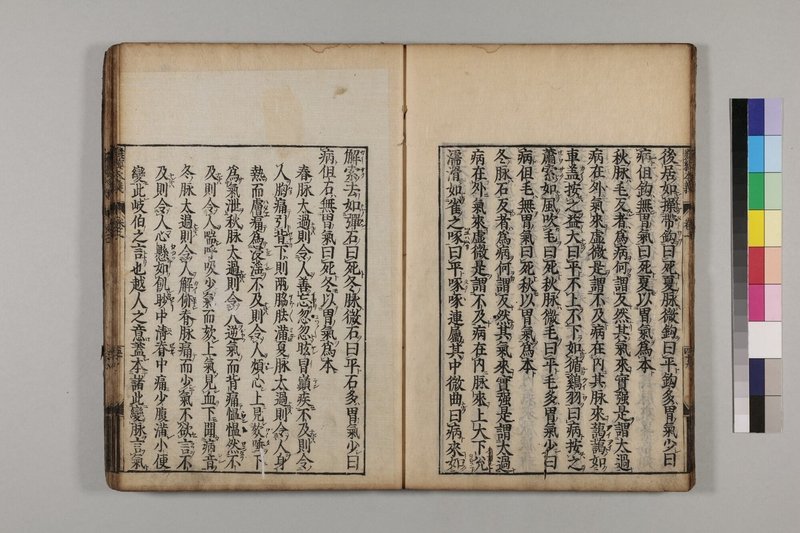 後居如操帶鈎曰死夏脉微鈎曰平鈎多胃氣少曰
病但鈎無胃氣曰死夏以胃氣爲本
秋脉毛反者爲病何謂反然其氣來實强是謂太過
病在外氣來虛微是謂不及病在內其脉來藹藹如
車蓋按之益大曰平不上不下如循鷄羽曰病按之
蕭索如風吹毛曰死秋脉微毛曰平毛多胃氣少曰
病但毛無胃氣曰死秋以胃氣爲本
冬脉石反者爲病何謂反然其氣來實强是謂太過
病在外氣來虛微是謂不及病在內脉來上大下兊
濡滑如雀之啄曰平啄啄連屬其中微曲曰病來如
解索去如彈石曰死冬脉微石曰平石多胃氣少曰
病但石無胃氣曰死冬以胃氣爲本
春脉太過則令人善忘忽忽眩冒巓疾不及則令
人胸痛引背下則兩脇胠滿夏脉太過則令人身
熱而膚痛爲浸淫不及則令人煩心上見欬唾下
爲氣泄秋脉太過則令人逆氣而背痛慍慍然不
及則令人喘呼吸少氣而欬上氣見血下聞病音
冬脉太過則令人解㑊脊脉痛而少氣不欲言不
及則令人心懸如飢䏚中淸脊中痛少腹滿小便
變此岐伯之言也越人之意蓋本諸此變脉言氣